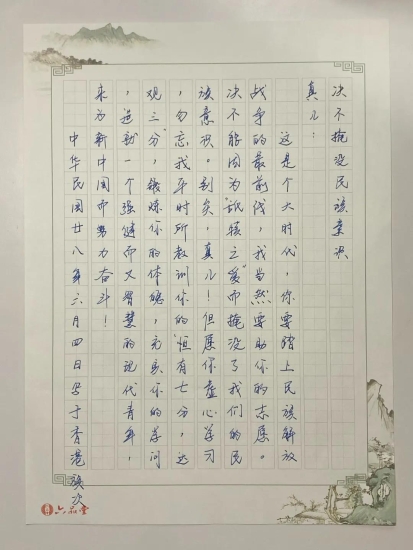 决不掩没民族意识
真儿：
这是个大时代，你要踏上民族解放
战争的最前线，我当然要助你的志愿。
决不能因为“舐犊之爱”而掩没了我们的民
族意识。别矣，真儿！但愿你虚心学习
，勿忘我平时所教训你的“恒有七分，达
观三分”，锻炼你的体魄，充实你的学问
，造就一个强健而又智慧的现代青年，
来为新中国而努力奋斗！
中华民国廿八年三月四日写于香港旅次
六品堂